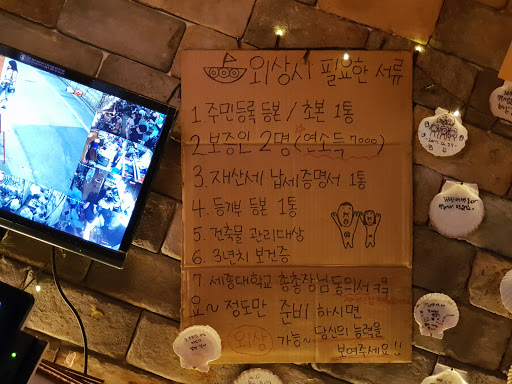 외상시 필요한 서류
1. 주민등록 등본 / 초본 1통
2. 보증인 2명 (연소득 7000)
3. 재산세 납세 증명서 1통
4. 등기부 등본 1통
5. 건축물 관리대상
6. 3년치 보건증
7. 세종대학교 총총장님 동의서 ㅋㅋ
요~ 정도만 준비 하시면
외상 가능~ 당신의 능력을
보여주세요!!